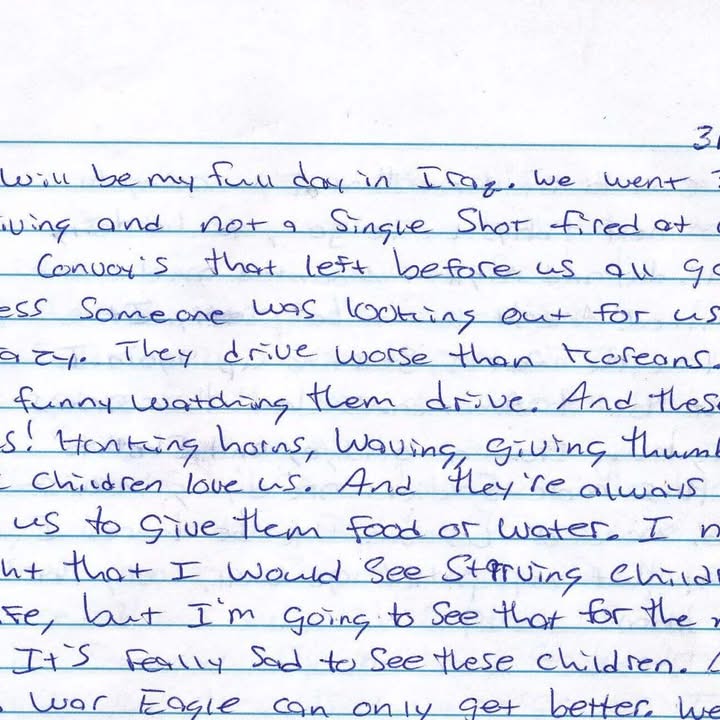 31
Will be my full day in Iraq. We went
iving and not a Single Shot fired at
Convoy's that left before us all go
ess Someone was looking out for us
azy. They drive worse than Koreans.
funny watching them drive. And thes
s! Honking horns, Waving, giving thumb
Children love us. And they're always
us to give them food or water. I n
ht that I would See Starving Childr
fe, but I'm going to See that for the
It's Really Sad to See these children.
War Eagle can only get better. We